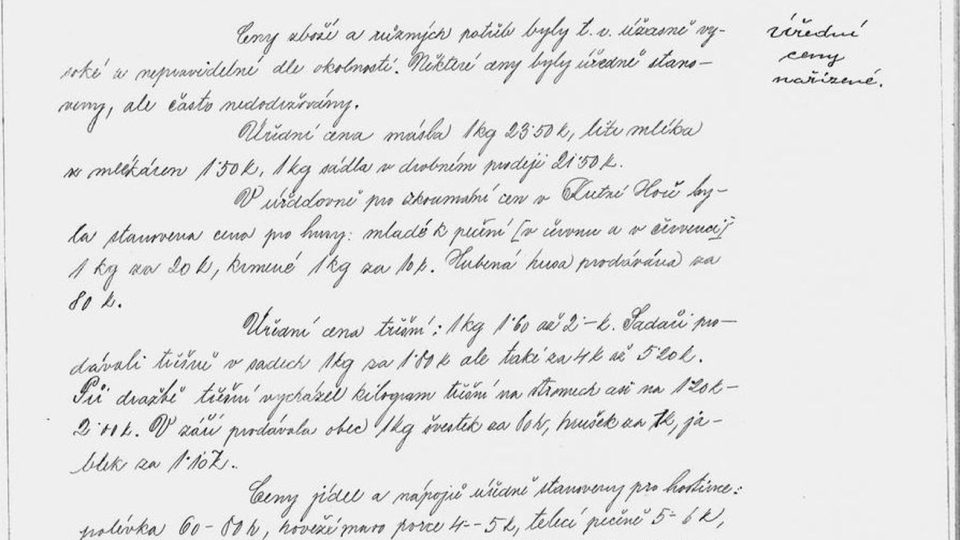 Ceny zboží a různých potřeb byly t. r. úžasně vy-
soké a nepravidelné dle okolností. Některé ceny byly úředně stano-
veny, ale často nedodržovány.
Úřední
ceny
nařízené.
Úřední cena másla 1 kg 23·50 K, litr mléka
v mlékáren 1·50 K, 1 kg sádla v drobném prodeji 21·50 K.
V úřadovně pro zkoumání cen v Kutné Hoře by-
la stanovena cena pro husy: mladé k pečení [v červnu a v červenci]
1 kg za 20 K, krmené 1 kg za 10 K. Hubená husa prodávána za
80 K.
Úřední cena třešní: 1 kg 1·60 až 2-K. Sadaři pro-
dávali třešně v sadech 1 kg za 1·80 K ale také za 4 K až 5·20 K.
Při dražbě třešní vycházel kilogram třešní na stromech asi na 1·20 K-
2·00 K. V září prodávala obec 1 kg švestek za 80 h, hrušek za 1K, ja-
blek za 1·10 K.
Ceny jídel a nápojů úředně stanoveny pro hostince:
polévka 60-80 h, hovězí maso porce 4--5 K, telecí pečeně 5-6 K,